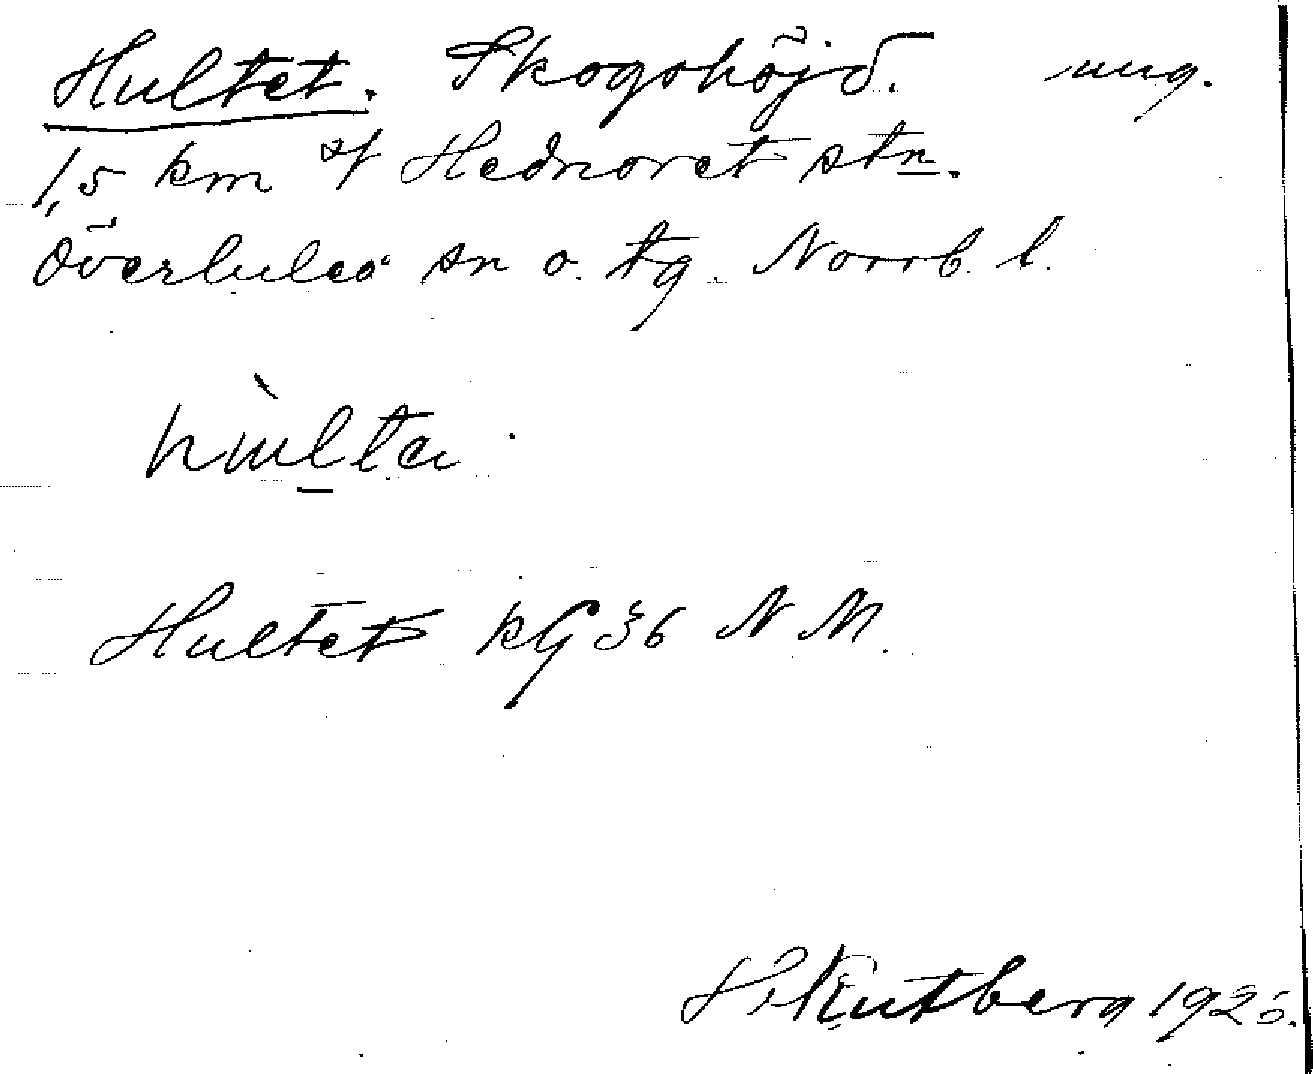 Hultet. Skogshöjd. ung.
1,5 km Hednoret stn.
Överluleå sn o. tg. Norrb. l.
hùlta
Hultet kG 36 N M.